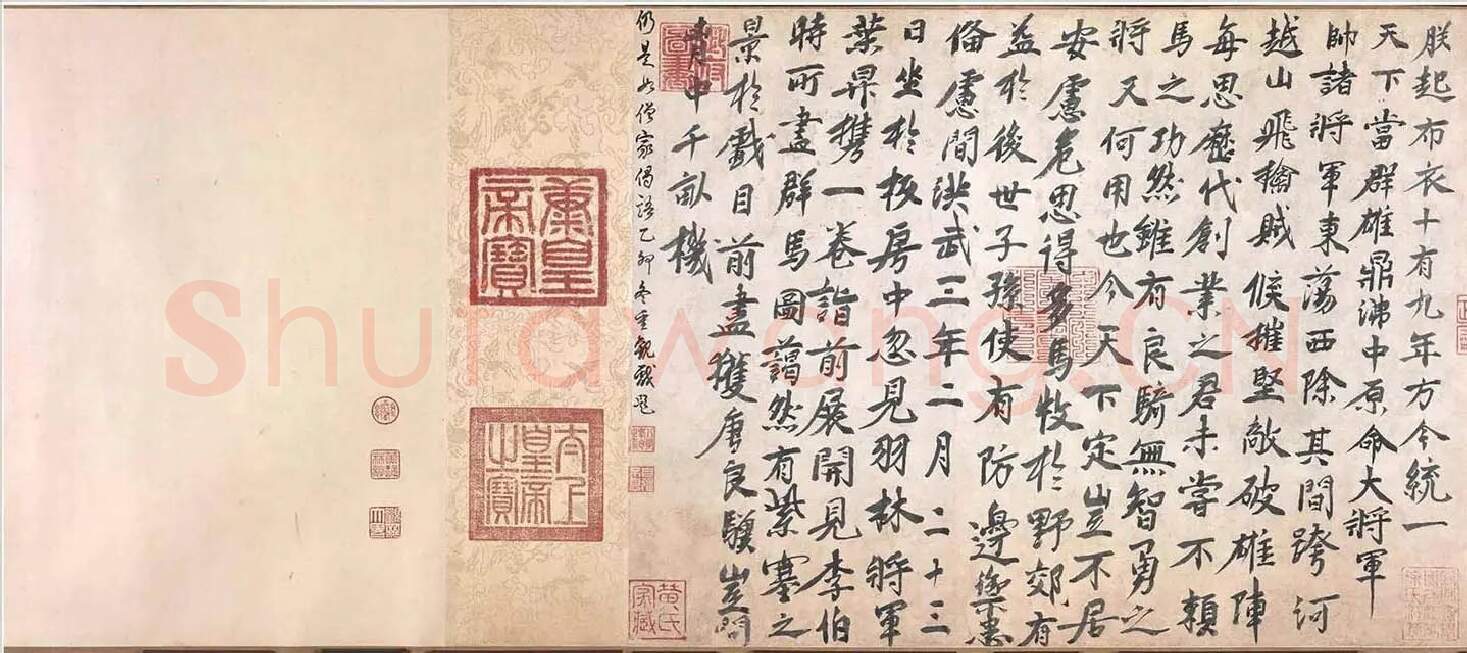 朕起布衣十有九年方今統一
天下當群雄鼎沸中原命大將軍
帥諸將軍東蕩西除其間跨河
越山飛擒賊候摧堅敵破雄陣
每思歷代創業之君未嘗不賴
馬之功然雖有良騎無智勇之
将又何用也今天下定豈不居
安慮危思得多馬牧於野郊有
益於後世子孫使有防邊禦患
俻慮間洪武三年二月二十三
日坐於板房中忽見羽林將軍
葉昇携一卷詣前展開見李伯
時所畫群馬圖藹然有紫塞之
景於戲目前盡獲唐良驥豈問
青中千畝機
仍是如僧家偈語乙卯冬重觀戲題
黄氏家藏
太上皇帝之寶
Shufawang.CN